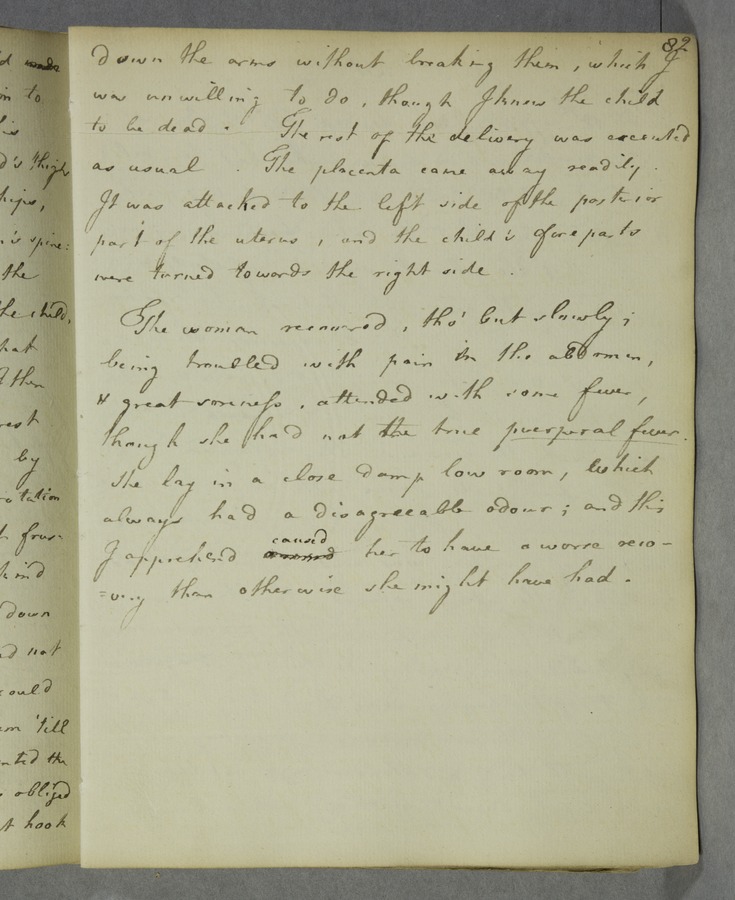 82
down the arms without breaking them, which I
was unwilling to do, though I knew the child
to be dead. The rest of the delivery was executed
as usual. The placenta came away readily.
It was attached to the left side of the posterior
part of the uterus, and the child's foreparts
were turned towards the right side.
The woman recovered, tho' but slowly;
being troubled with pain in the abdomen,
& great soreness, attended with some fever,
though she had not the true puerperal fever.
She lay in a close damp low room, which
always had a disagreeable odour; and this
caused
I apprehend her to have a worse reco-
=very than otherwise she might have had.
d made
in to
his
d's thigh
hips,
's spine:
the
the child,
hat
then
rest
by
rotation
kind
down
nd not
could
em 'till
nted the
obliged
t hook